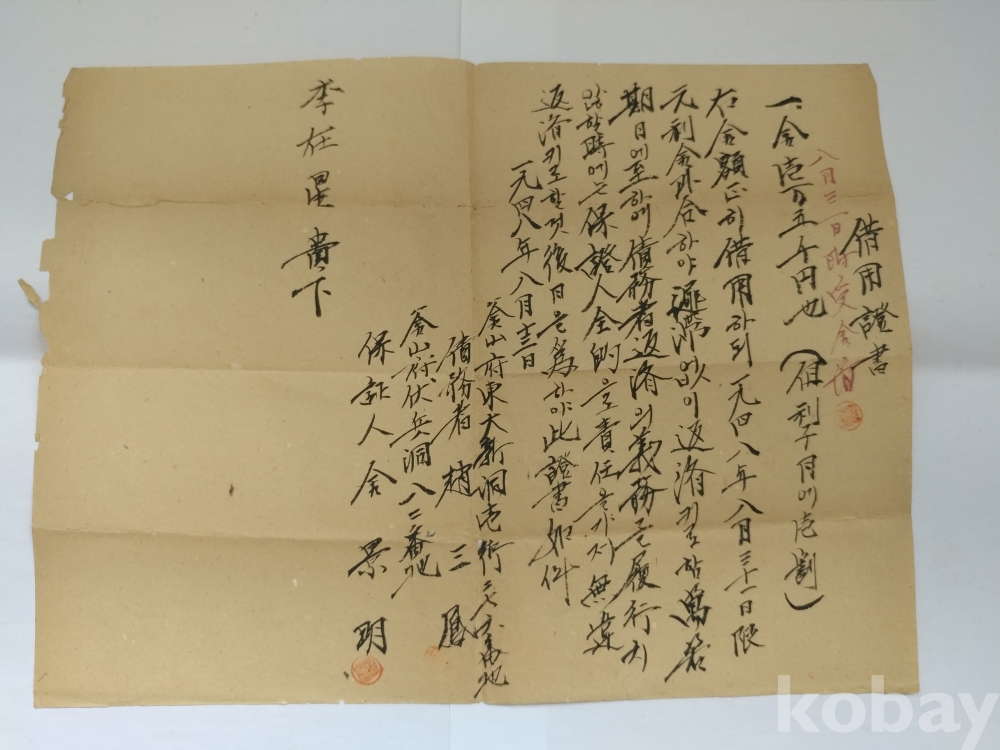 借用證書
八月三一日時受金
一. 金壱万五千円也 (但利子月에壱割)
右金額正히借用하되一九四八年八月三十一日限
元利金과合하야遲滯없이返済키로함萬若
期日에至하애債務者返済의義務를履行치
않할時에는保證人全的으로責任을가지無違
返済키로할것後日을為하야此證書如件
一九四八年八月十三日
釜山府東大新洞壱街二七番地
債務者 趙三鳳
釜山府伏兵洞八二番地
保証人 金景明
李任星 貴下
kobay